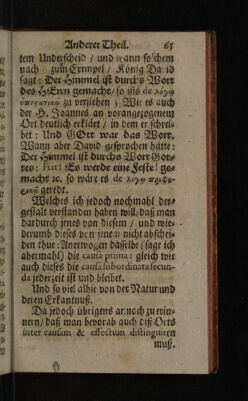 Anderer Theil. 65
tem Underscheid / und wann so'chem
nach / zum Exempel / König Da id
sagt: Der Himmel ist durchs Wort
des HErrn gemacht / so ists de λόγῳ
zu verstehen; Wie es auch
der H. Joannes an vorangezogenem
Ort deutlich erkläret / in dem er schrei-
bet: Und GOtt war das Wort.
Wann aber David gesprochen hätte:
Der Himmel ist durchs Wort Got-
tes: Fiat! Es werde eine Feste! ge-
macht ꝛc. so wäre es de λόγῳ προφο-
ρικῷ geredt.
Welches ich jedoch nochmahl der-
gestalt verstanden haben will, daß man
dardurch jenes von diesem / und wie-
derumb dieses von jenem nicht abschei-
den thue: Anerwogen dasselbe (sage ich
abermahl) die causa prima: gleich wie
auch dieses die causa subordinata secun-
da jederzeit ist und bleibet.
Und so viel alhie von der Natur und
deren Erkantnuß.
Da jedoch übrigens annoch zu erin-
nern / daß man bevorab auch diß Orts
inter causam & effectum distinguiren
muß.